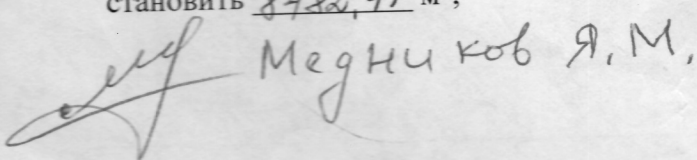 становить м³,
Медников Я. М.